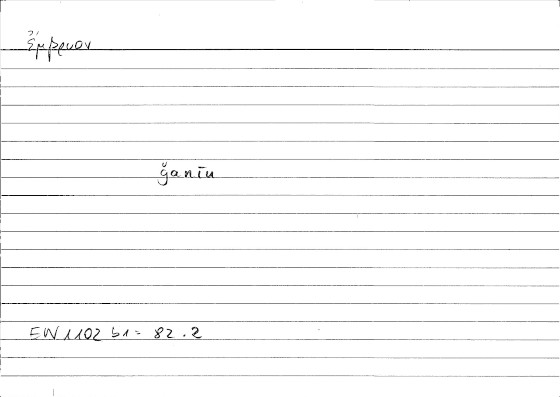 ἔμβρυον
ǧanīn
EN 1102 b1 = 82.2